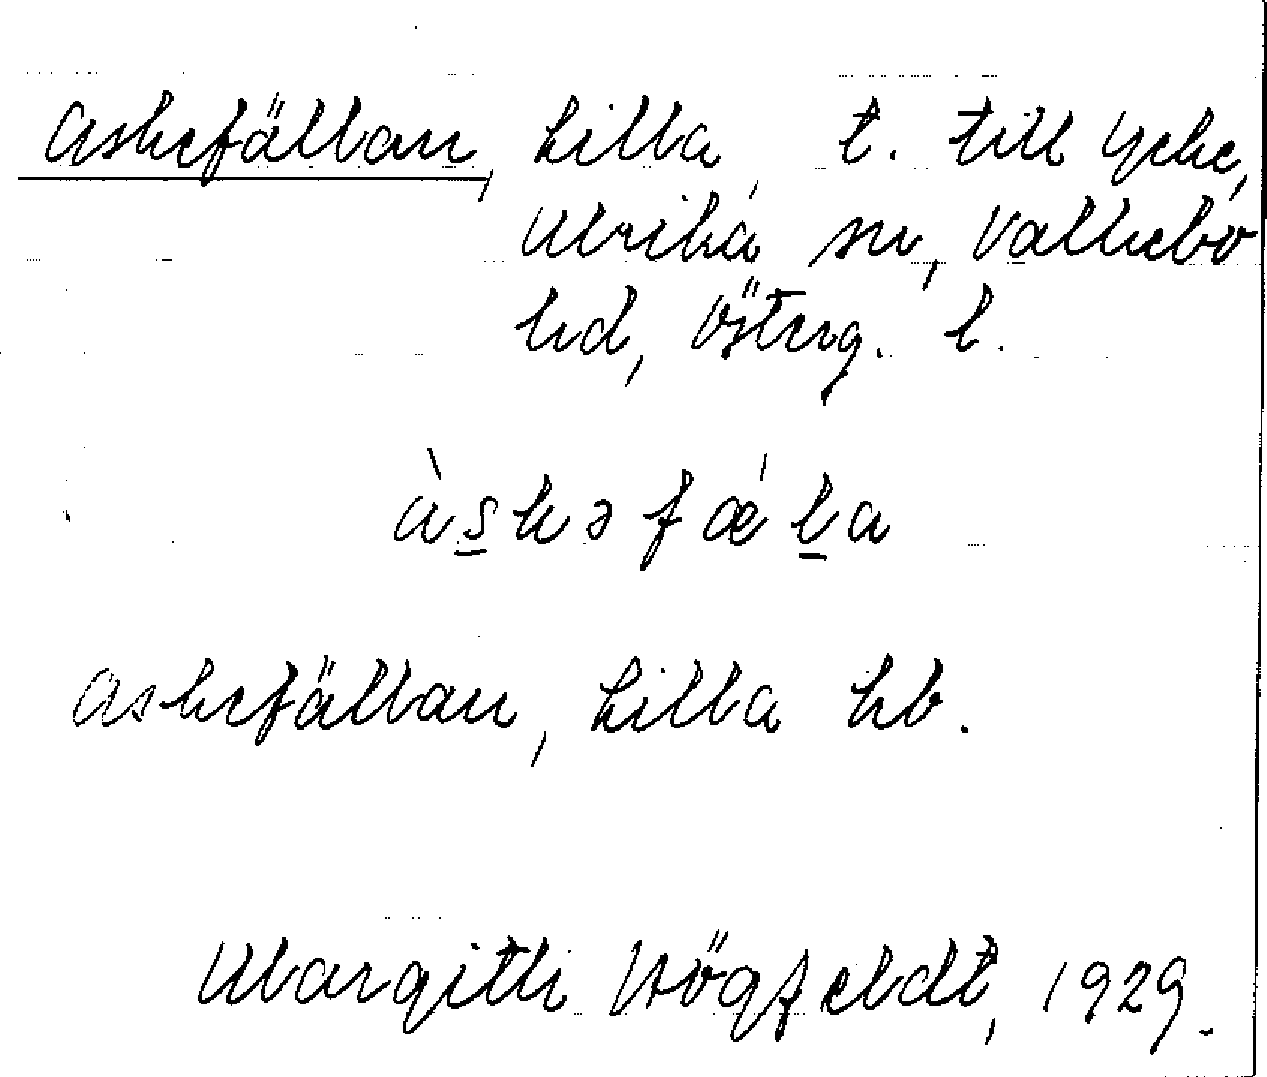 Askefällan, Lilla, t. till Ycke,
Ulrika sn, Valkebo
hd, Österg. l.
àskəfǽla
Askefällan, Lilla hb.
Margith Högfeldt, 1929.